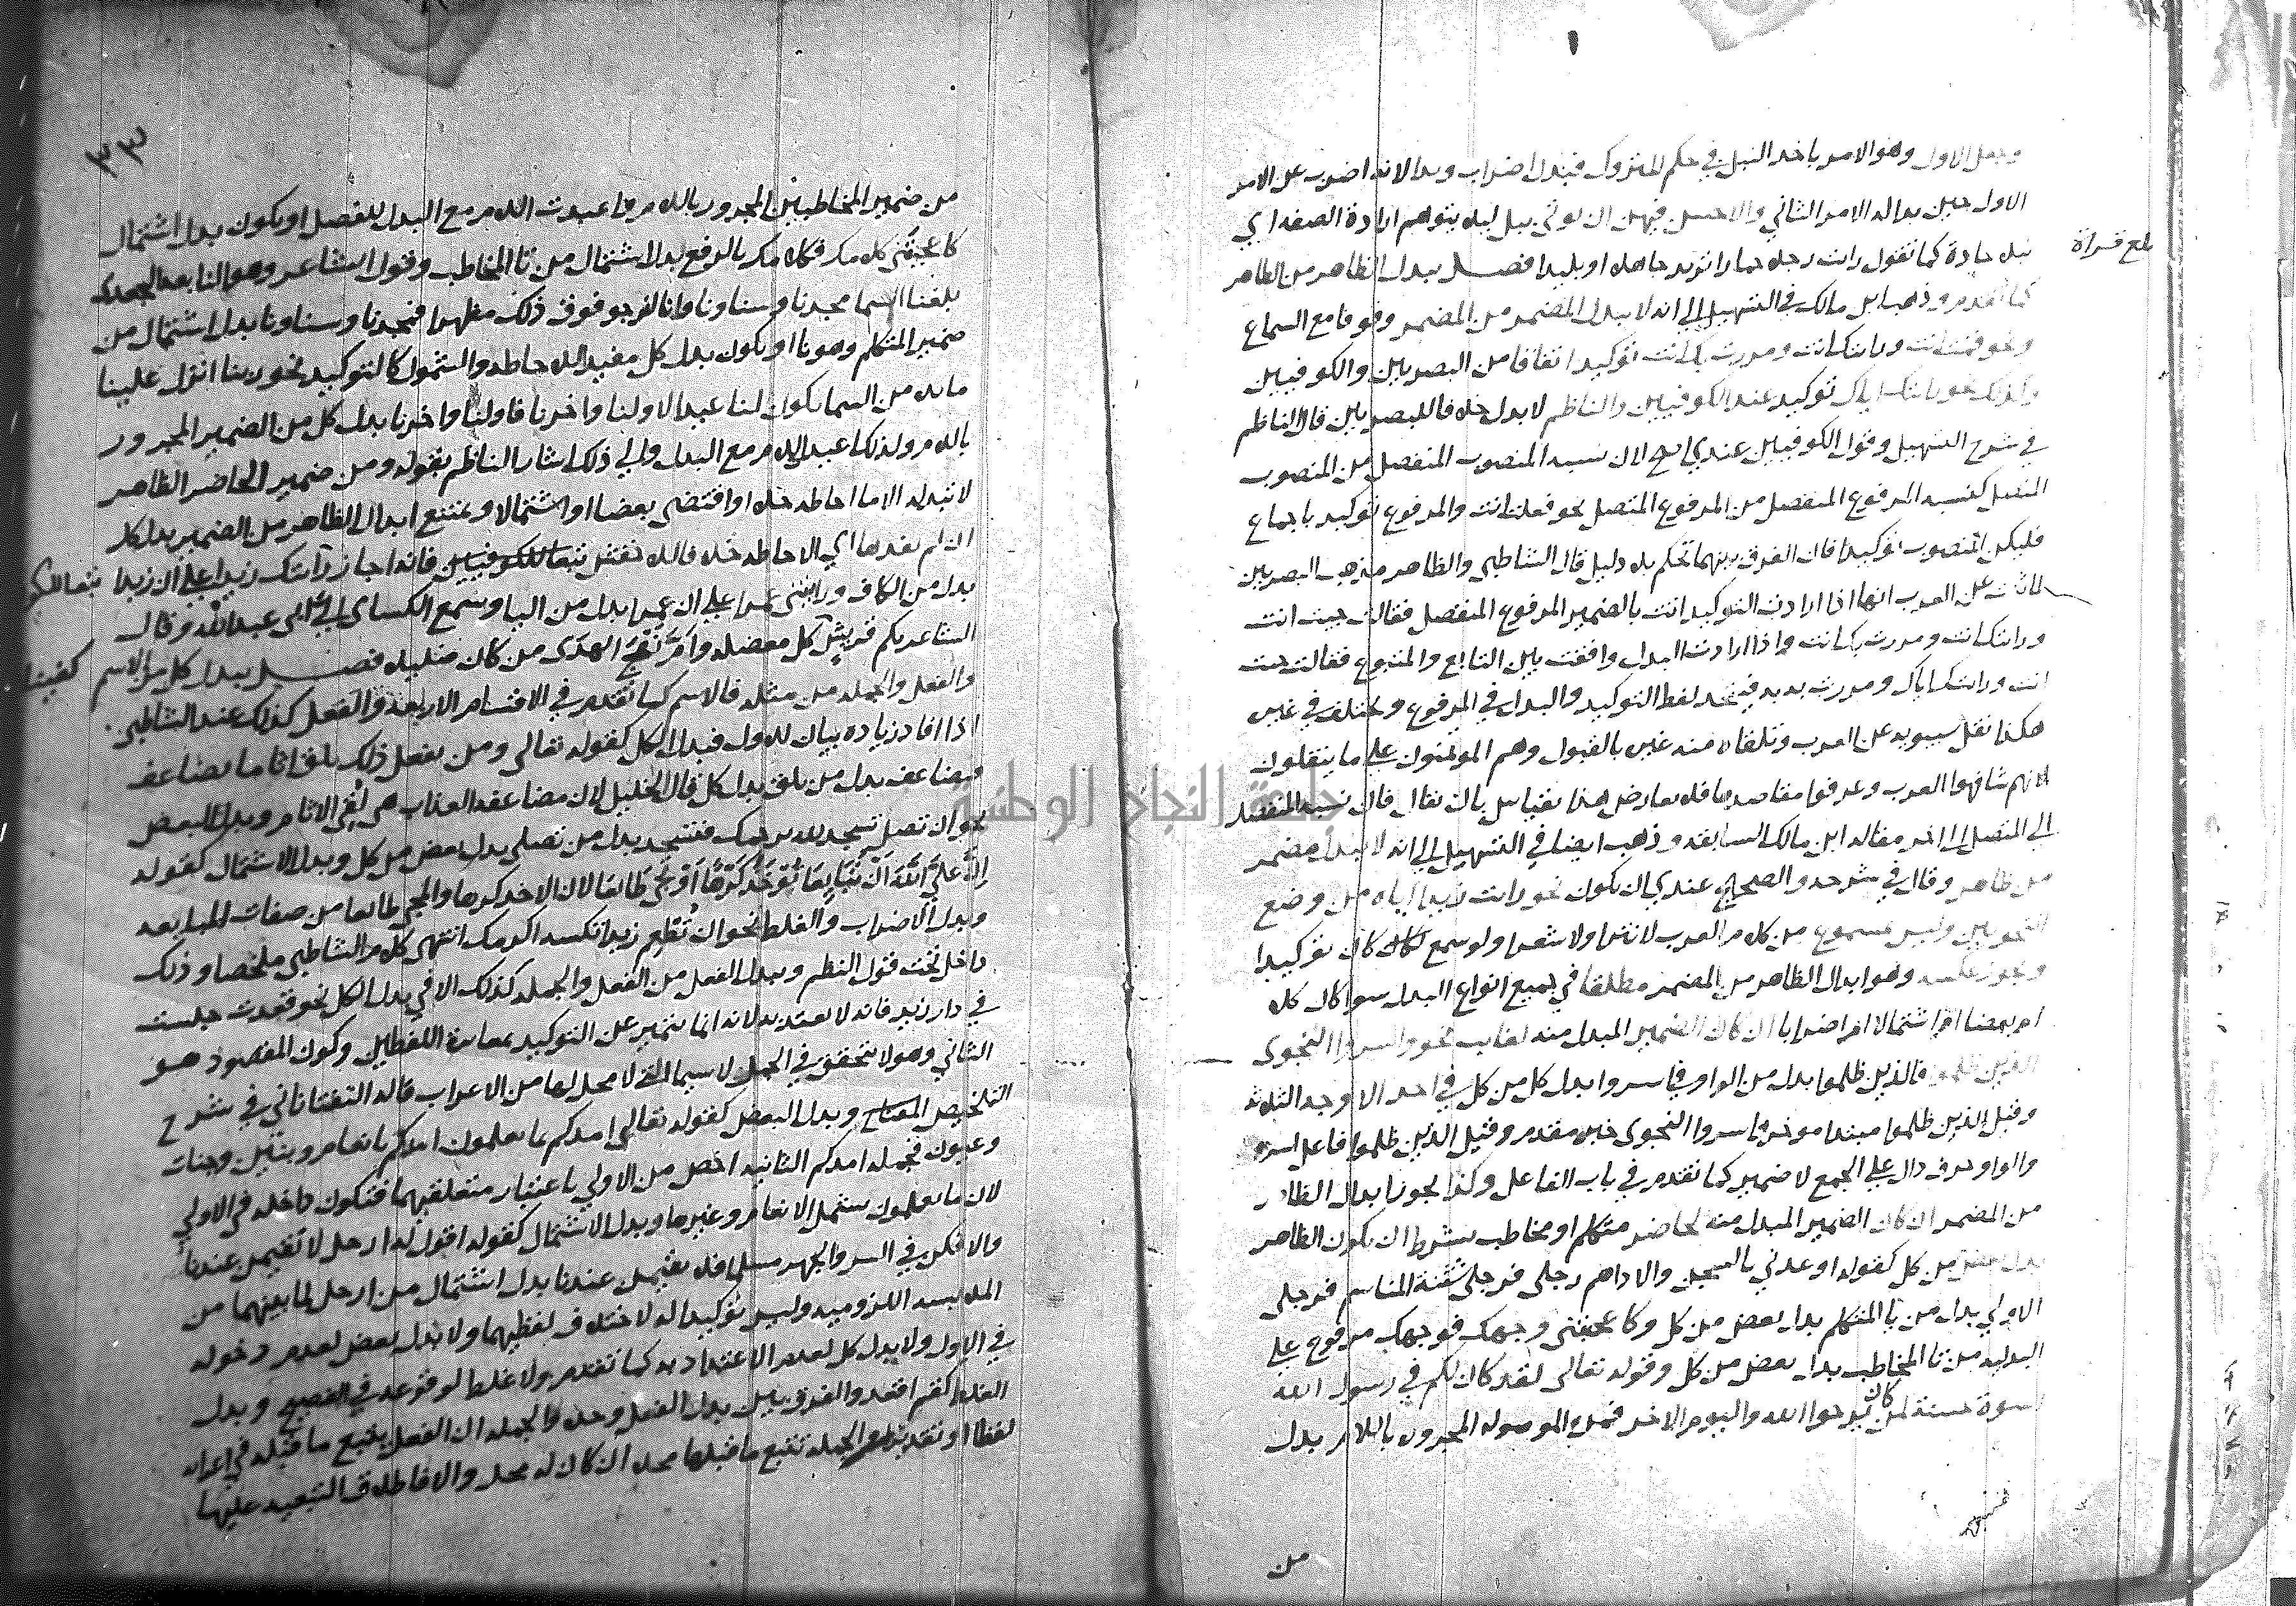 وجعل الاول وهو الامر باخذ النبل في حكم المتروك فبدل اضراب وبدا لانه اضرب عن الامر
الاول حين بدا له الامر الثاني والاحسن فيهن ان يوتي ببل ليلا يتوهم ارادة الصفه اي
نبلا حادة كما تقول رايت رجلا حمارا تريد جاهلا او بليدا فصل يبدل الظاهر من الظاهر
بلغ قراة
كما تقدم وذهب ابن مالك في التسهيل الي انه لا يبدل المضمر من المضمر وقوفا مع السماع
ونحو قمت انت ورايتك انت ومررت بك انت توكيد اتفاقا من البصريين والكوفيين
وكذلك نحو رايتك اياك توكيد عند الكوفيين والناظم لا بدل خلافا للبصريين قال الناظم
في شرح التسهيل وقول الكوفيين عندي اصح لان نسبة المنصوب المنفصل من المنصوب
المتصل كنسبه المرفوع المنفصل من المرفوع المتصل نحو فعلت انت والمرفوع توكيد باجماع
فليكن المنصوب توكيدا فان الفرق بينهما تحكم بلا دليل قال الشاطبي والظاهر مذهب البصريين
لما ثبت عن العرب انها اذا ارادت التوكيد اتت بالضمير المرفوع المنفصل فقالت جيت انت
ورايتك انت ومررت بك انت واذا ارادت البدل وافقت بين التابع والمتبوع فقالت جيت
انت ورايتك اياك ومررت به به فيتحد لفظ التوكيد والبدل في المرفوع ويختلف في غير
هكذا نقل سيبويه عن العرب وتلقاه منه غيره بالقبول وهم الموتمنون علي ما ينقلون
لانهم شافهوا العرب وعرفوا مقاصدها فلا يعارض هذا بقياس بان يقال فان نسبة المنفصل
الي المتصل الي اخر مقاله ابن مالك السابقة وذهب ايضا في التسهيل الي انه لا يبدل مضمر
من ظاهر وقال في شرحه والصحيح عندي ان يكون نحو رايت زيدا اياه من وضع
النحويين وليس بمسموع من كلام العرب لا نثرا ولا شعرا ولو سمع لكان كان توكيدا
ويجوز عكسه وهو ابدال الظاهر من المضمر مطلقا في جميع انواع البدل سوا كان كلا
ام بعضا ام اشتمالا ام اضرابا ان كان الضمير المبدل منه لغايب نحو واسروا النجوى
الذين ظلموا فالذين ظلموا بدل من الواو في اسروا بدل كل من كل في احد الاوجه الثلاثة
وقيل الذين ظلموا مبتدا موخر واسروا النجوى خبر مقدم وقيل الذين ظلموا فاعل اسروا
والواو حرف دال علي الجمع لا ضمير كما تقدم في باب الفاعل وكذا يجوز ابدال الظاهر
من المضمر ان كان الضمير المبدل منه لحاضر متكلم او مخاطب بشرط ان يكون الظاهر
بدل بعض من كل كقوله اوعدني بالسجن والاداهم رجلي فرجلي شثنة المناسم فرجلي
الاولي بدل من يا المتكلم بدل بعض من كل وكاعجبتني وجهك فوجهك مرفوع علي
البدلية من تا المخاطب بدل بعض من كل وقوله تعالى لقد كان لكم في رسول الله
اسوة حسنة لمن كان يرجوا الله واليوم الاخر فمن الموصولة المجرور باللام بدل
من
٣٣
من ضمير المخاطبين المجرور باللام واعيدت اللام مع البدل للفصل او يكون بدل اشتمال
كاعجبتني كلامك فكلامك بالرفع بدل اشتمال من تا المخاطب وقول الشاعر وهو النابغة الجعدي
بلغنا السما مجدنا وسناونا وانا لنرجو فوق ذلك مظهرا فمجدنا وسناونا بدل اشتمال من
ضمير المتكلم وهو نا او يكون بدل كل مفيد للاحاطه والشمول كالتوكيد نحو ربنا انزل علينا
مايدة من السما تكون لنا عيدا لاولنا واخرنا فاولنا واخرنا بدل كل من الضمير المجرور
باللام ولذلك اعيد اللام مع البدل والي ذلك اشار الناظم بقوله ومن ضمير الحاضر الظاهر
لا تبدله الا ما احاطه جلا او اقتضى بعضا او اشتمالا ويمتنع ابدال الظاهر من الضمير بدل كل
ان لم يفدها اي الاحاطه خلافا للاخفش تبعا للكوفيين فانه اجاز رايتك زيدا علي ان زيدا
بدل من الكاف ورايتني عمرا علي ان عمرا بدل من اليا وسمع الكساي الي ابي عبد الله وقال
الشاعر بكم قريش كفينا كل معضلة وام نهج الهدى من كان ضليلا فصل يبدل كل من الاسم
والفعل والجملة من مثله فالاسم كما تقدم في الاقسام الاربعة والفعل كذلك عند الشاطبي
اذا افاد زيادة بيان للاول فبدل الكل كقوله تعالى ومن يفعل ذلك يلق اثاما يضاعف
فيضاعف بدل من يلق بدل كل قال الخليل لان مضاعفة العذاب هي لقي الاثام وبدل البعض
نحو ان تصل تسجد لله يرحمك فتسجد بدل من تصل بدل بعض من كل وبدل الاشتمال كقوله
ان علي الله ان تبايعا تؤخذ كرها او تجي طائعا لان الاخذ كرها والمجي طائعا من صفات المبايعة
وبدل الاضراب والغلط نحو ان تطعم زيدا تكسه اكرمك انتهى كلام الشاطبي ملخصا وذلك
داخل تحت قول النظم ويبدل الفعل من الفعل والجملة كذلك الا في بدل الكل نحو قعدت جلست
في دار زيد فانه لا يعتد به لانه انما يتميز عن التوكيد بمغايرة اللفظين وكون المقصود هو
الثاني وهو لا يتحقق في الجمل لا سيما التي لا محل لها من الاعراب قاله التفتازاني في شرح
التلخيص المفتاح وبدل البعض كقوله تعالى امدكم بما تعلمون امدكم بانعام وبنين وجنات
وعيون فجملة امدكم الثانية اخص من الاولي باعتبار متعلقيهما فتكون داخلة في الاولي
لان ما تعلمون يشمل الانعام وغيرها وبدل الاشتمال كقوله اقول له ارحل لا تقيمن عندنا
والا فكن في السر والجهر مسلما فلا تقيمن عندنا بدل اشتمال من ارحل لما بينهما من
الملابسة اللزومية وليس توكيدا له لاختلاف لفظيهما ولا بدل بعض لعدم دخوله
في الاول ولا بدل كل لعدم الاعتداد به كما تقدم ولا غلط لوقوعه في الفصيح وبدل
الغلط كقم اقعد والفرق بين بدل الفعل وحده والجملة ان الفعل يتبع ما قبله في اعرابه
لفظا او تقديرا والجملة تتبع ما قبلها محلا ان كان له محل والا فاطلاق التبعية عليها
جامعة النجاح الوطنية